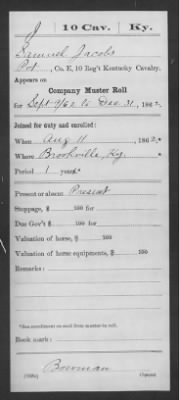 J 10 Cav. Ky.
Samuel Jacobs
Pvt., Co. E, 10 Reg't Kentucky Cavalry.
Appears on
Company Muster Roll
for Sept 9/62 to Dec 31, 1862.
Joined for duty and enrolled:
When Aug 11, 1862.*
Where Brookville, Ky.
Period 1 years*
Present or absent Present
Stoppage, $ 100 for
Due Gov't $ 100 for
Valuation of horse, $ 100
Valuation of horse equipments, $ 100
Remarks:
*See enrollment on card from muster-in roll.
Book mark:
Bowman
Copyist.